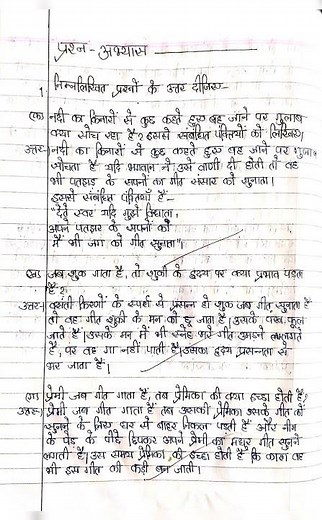 प्रश्न - अभ्यास
1. निम्नलिखित प्रश्नों के उत्तर दीजिए-
(क) नदी का किनारों से कुछ कहते हुए बह जाने पर गुलाब
क्या सोच रहा है? इससे संबंधित पंक्तियों को लिखिए।
उत्तर- नदी का किनारों से कुछ कहते हुए बह जाने पर गुलाब
सोचता है यदि भगवान ने उसे वाणी दी होती तो वह
भी पतझड़ के सपनों का गीत संसार को सुनाता।
इससे संबंधित पंक्तियाँ हैं-
"देते स्वर यदि मुझे विधाता,
अपने पतझर के सपनों का
मैं भी जग को गीत सुनाता"।
(ख) जब शुक गाता है, तो शुकी के हृदय पर क्या प्रभाव पड़ता
है?
उत्तर- वसंती किरणों के स्पर्श से प्रसन्न हो शुक जब गीत सुनाता है
तो वह गीत शुकी के मन को छू जाता है। उसके पंख फूल
जाते हैं। उसके मन में भी स्नेह भरे गीत उमड़ने लगते
हैं, पर वह गा नहीं पाती है। उसका हृदय प्रसन्नता से
भर जाता है।
(ग) प्रेमी जब गीत गाता है, तब प्रेमिका की क्या इच्छा होती है?
उत्तर- प्रेमी जब गीत गाता है तब उसकी प्रेमिका उसके गीत को
सुनने के लिए घर से बाहर निकल पड़ती है और नीम
के पेड़ के पीछे छिपकर अपने प्रेमी का मधुर गीत सुनने
लगती है। उस समय प्रेमिका की इच्छा होती है कि काश वह
भी इस गीत की कड़ी बन जाती।